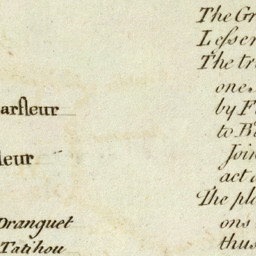 arfleur
leur
Dranguet
Tatihou
The Gr
Lesser
The tr
one
by F
to B
Join
act
The pl
ons
thus